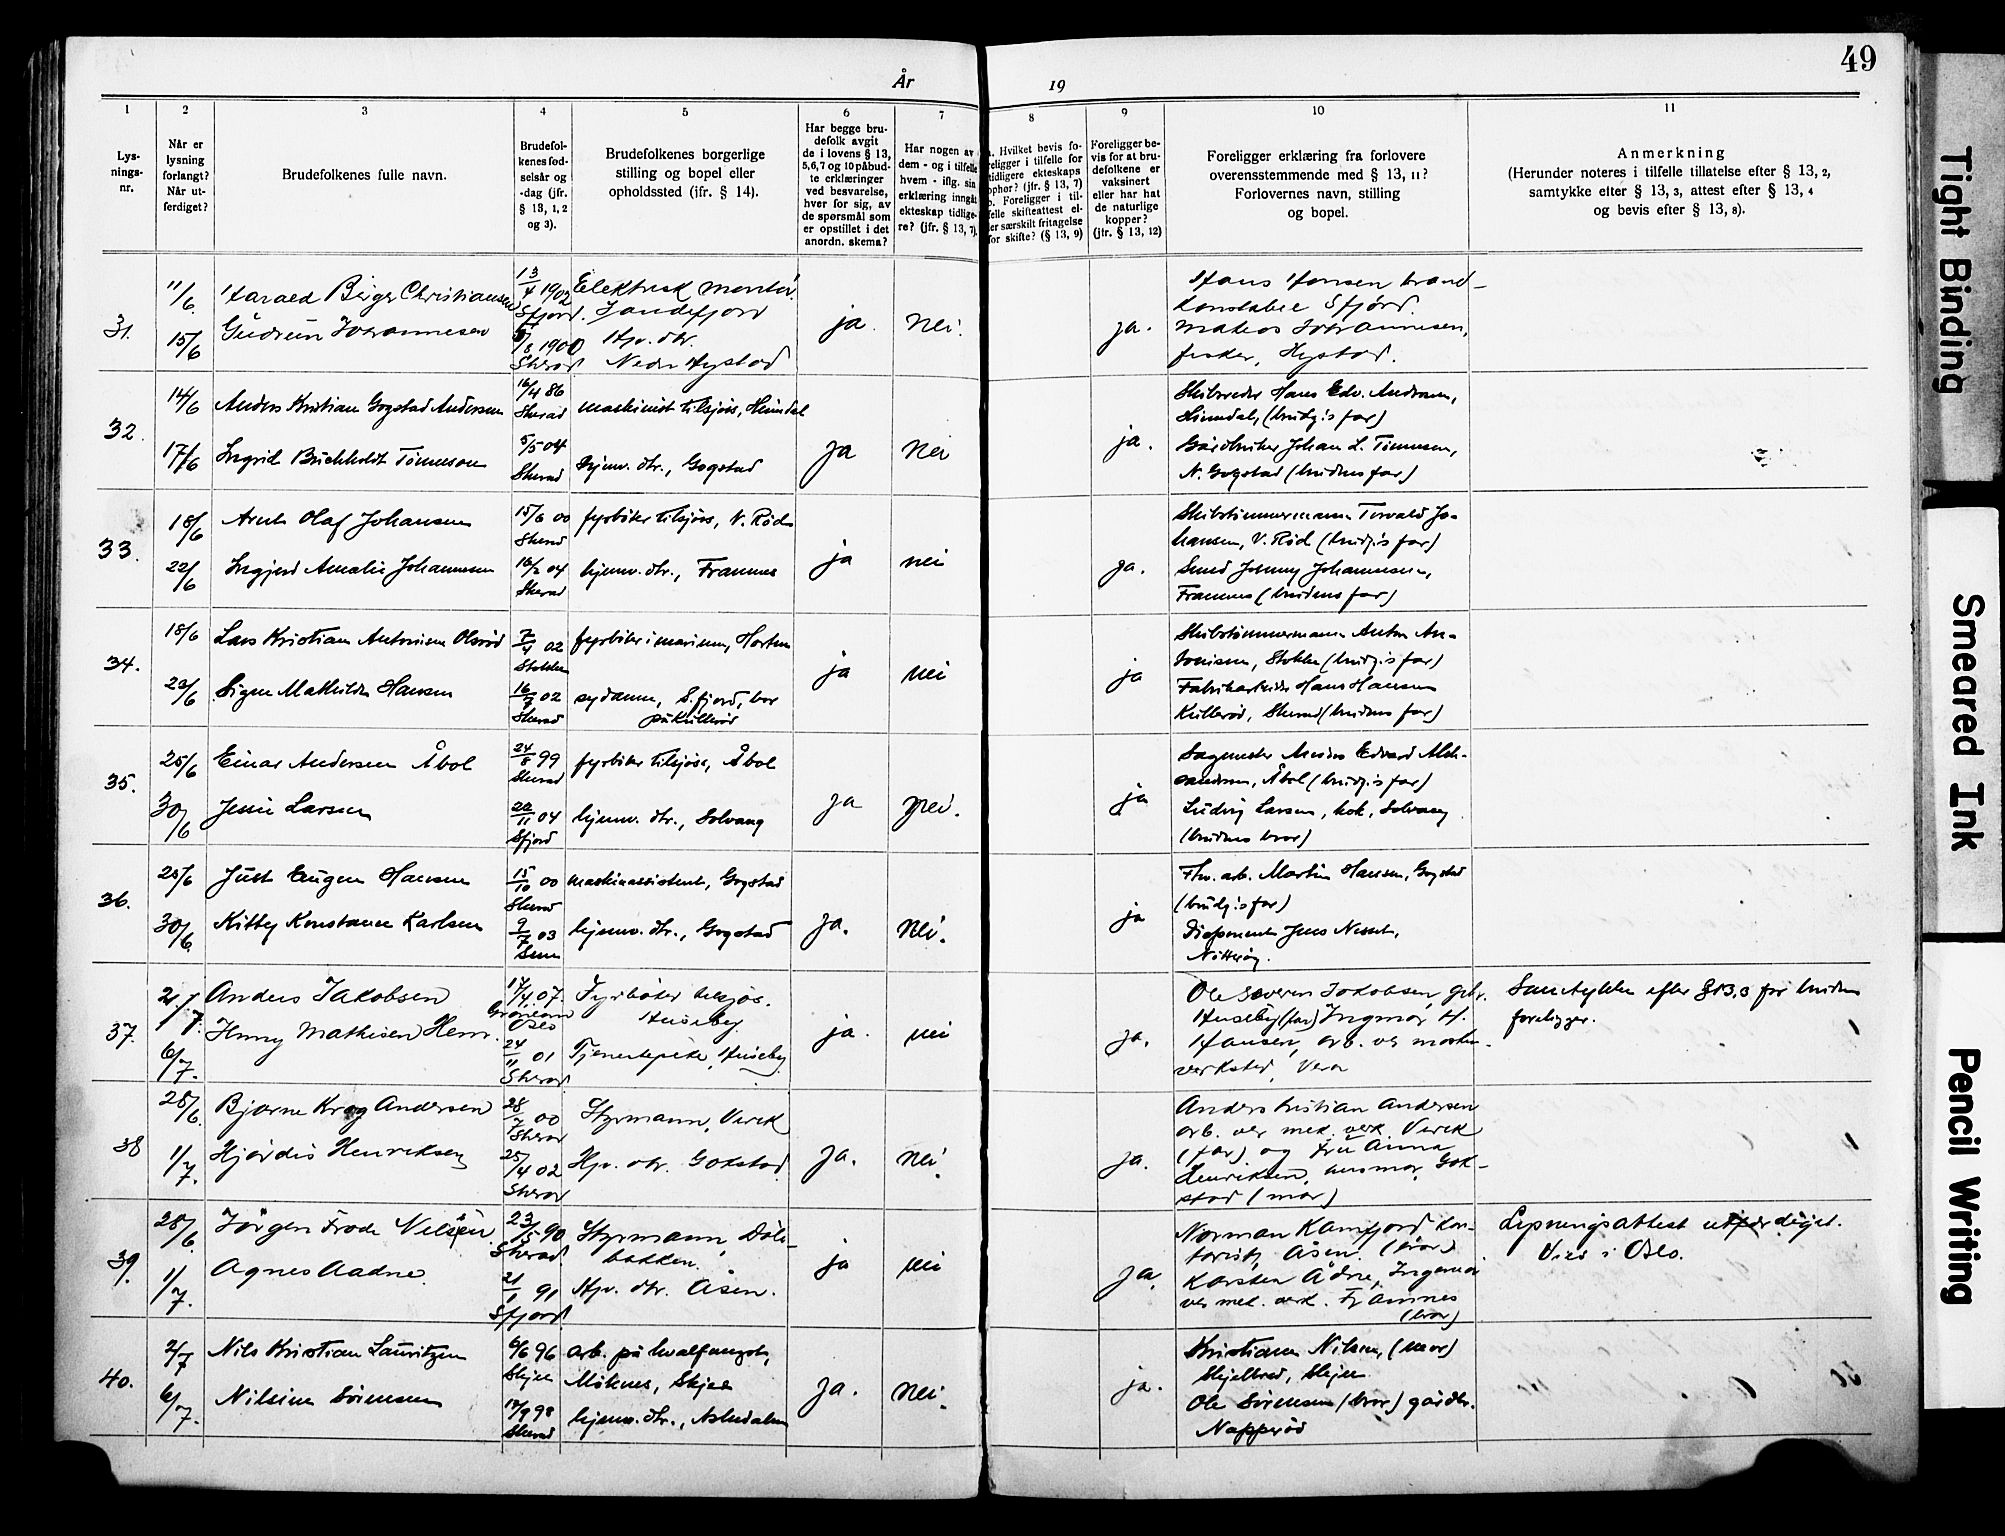 49
År 19
1
Lys-
nings-
nr.
2
Når er
lysning
forlangt?
Når ut-
ferdiget?
3
Brudefolkenes fulle navn.
4
Brudefol-
kenes fød-
selsår og
-dag (jfr.
§ 13, 1, 2
og 3).
5
Brudefolkenes borgerlige
stilling og bopel eller
opholdssted (ifr. § 14).
6
Har begge bru-
defolk avgit
de i lovens § 13,
5,6,7 og 10 påbud-
te erklæringer
ved besvarelse,
hver for sig, av
de spørsmål som
er opstillet i det
anordn. skema?
7
Har nogen av
dem - og i tilfelle
hvem - iflg. sin
erklæring inngåt
ekteskap tidlige-
re? (jfr. § 13, 7).
8
Hvilket bevis fo-
religger i tilfelle for
tidligere ekteskaps
ophør? (jfr. § 13, 7)
Foreligger i til-
felle skifteattest el-
ler særskilt fritagelse
for skifte? (§ 13, 9)
9
Foreligger be-
vis for at bru-
defolkene er
vaksinert
eller har hat
de naturlige
kopper?
(jfr. § 13, 12)
10
Foreligger erklæring fra forlovere
overensstemmende med § 13, 11?
Forlovernes navn, stilling
og bopel.
11
Anmerkning
(Herunder noteres i tilfelle tillatelse efter § 13, 2,
samtykke efter § 13, 3, attest efter § 13, 4
og bevis efter § 13, 8).
31.
11/6
15/6
Harald Birger Christiansen
Gudrun Johannesen
13/4 1902
Sfjord.
5/8 1900
Sherad
Elektrisk montør
Sandefjord
Hjv. dtr.
Nedre Hystad
ja.
nei.
ja.
Hans Hansen brand-
konstabel Sfjord.
Mateos Johannesen,
fisker, Hystad.
32.
14/6
17/6
Anders Kristian Gogstad Andersen
Ingrid Buchholdt Tønnesen
16/4 86
Sherad
5/5 04
Sherad
maskinist tilsjøs, Heimdal
hjemv. dtr., Gogstad
ja
nei
ja.
Skibsreder Hans Edv. Andersen,
Heimdal, (brudg.s far)
Gårdbruker Johan L. Tønnesen,
N. Gogstad (brudens far)
33.
18/6
22/6
Arne Olaf Johansen
Ingjerd Amalie Johannesen
15/6 00
Sherad
16/2 04
Sherad
fyrbøter tilsjøs, V. Rød
hjemv. dtr., Framnes
ja
nei
ja.
Skibstømmermann Torvald Jo-
hansen, V. Rød (brudg.s far)
Smed Johnny Johannesen,
Framnes (brudens far)
34.
18/6
23/6
Lars Kristian Antonisen Olsrød
Signe Mathilde Hansen
7/4 02
Stokke
16/7 02
Sherad
fyrbøter i marinen, Horten
sydame, S.fjord, bor
på Kullerød
ja
nei
ja
Skibstømmermann Anton An-
tonisen, Stokke (brudg.s far)
Fabrikarbeider Hans Hansen
Kullerød, Sherad (brudens far)
35.
25/6
30/6
Einar Andersen Åbol
Jenny Larsen
24/8 99
Sherad
20/11 04
Sfjord
fyrbøter tilsjøs, Åbol
hjemv. dtr., Solvang
ja
nei.
ja
Sagmester Anders Edvard Alek-
sandersen, Åbol (brudg.s far)
Ludvig Larsen, kok, Solvang
(brudens bror)
36.
25/6
30/6
Just Eugen Hansen
Kitty Konstance Karlsen
15/10 00
Sherad
9/7 03
Sem
maskinassistent, Gogstad
hjemv. dtr., Gogstad
ja.
nei.
ja
Fhv. arb. Martin Hansen, Gogstad
(brudg.s far)
Disponent Jens Nesset,
Nøtterøy.
37.
2/7
6/7.
Anders Jakobsen
Jenny Mathisen Hem.
17/4.07.
Grønland
Oslo
24/11 01
Sherad
Fyrbøter tilsjøs.
Huseby.
Tjenestepike, Huseby
ja.
nei
ja.
Ole Severin Jakobsen, gbr.
Huseby (far) Ingmar H.
Hansen, arb. ved mask.-
verksted, Vera
Samtykke efter §13,3 for bruden
foreligger.
38
28/6.
1/7.
Bjarne Krog Andersen
Hjørdis Henriksen
28/7 00
Sherad
25/4 02
Sherad
Styrmann, Virik
Hjv. dtr. Gokstad.
ja.
nei.
ja.
Anders Kristian Andersen
arb. ved mek. verk. Virik
(far) og Fru Anna
Henriksen, husmor, Gok-
stad (mor)
39.
28/6.
1/7.
Jørgen Frode Nilsen
Agnes Aadne.
23/5 90
Sherad
21/1 91
Sfjord
Styrmann, Døle-
bakken.
Hjv. dtr. Åsen.
ja
nei
ja.
Norman Kamfjord kon-
torist, Åsen. (bror)
Karsten Ådne, Ingeniør
ved mek. verk. Framnes
(bror)
Lysningsattest utferdiget.
Vies i Oslo.
40.
2/7
6/7.
Nils Kristian Lauritzen
Nilsine Sørensen
6/6 96
Skjee
17/9 98
Sherad
arb. på hvalfangst,
Møknes, Skjee
hjemv. dtr., Askedalen
ja.
nei.
ja.
Kristiane Nilsen, (mor)
Skjelbred, Skjee
Ole Sørensen (bror) gårdbr.
Napperød
Tight Binding
Smeared Ink
Pencil Writing